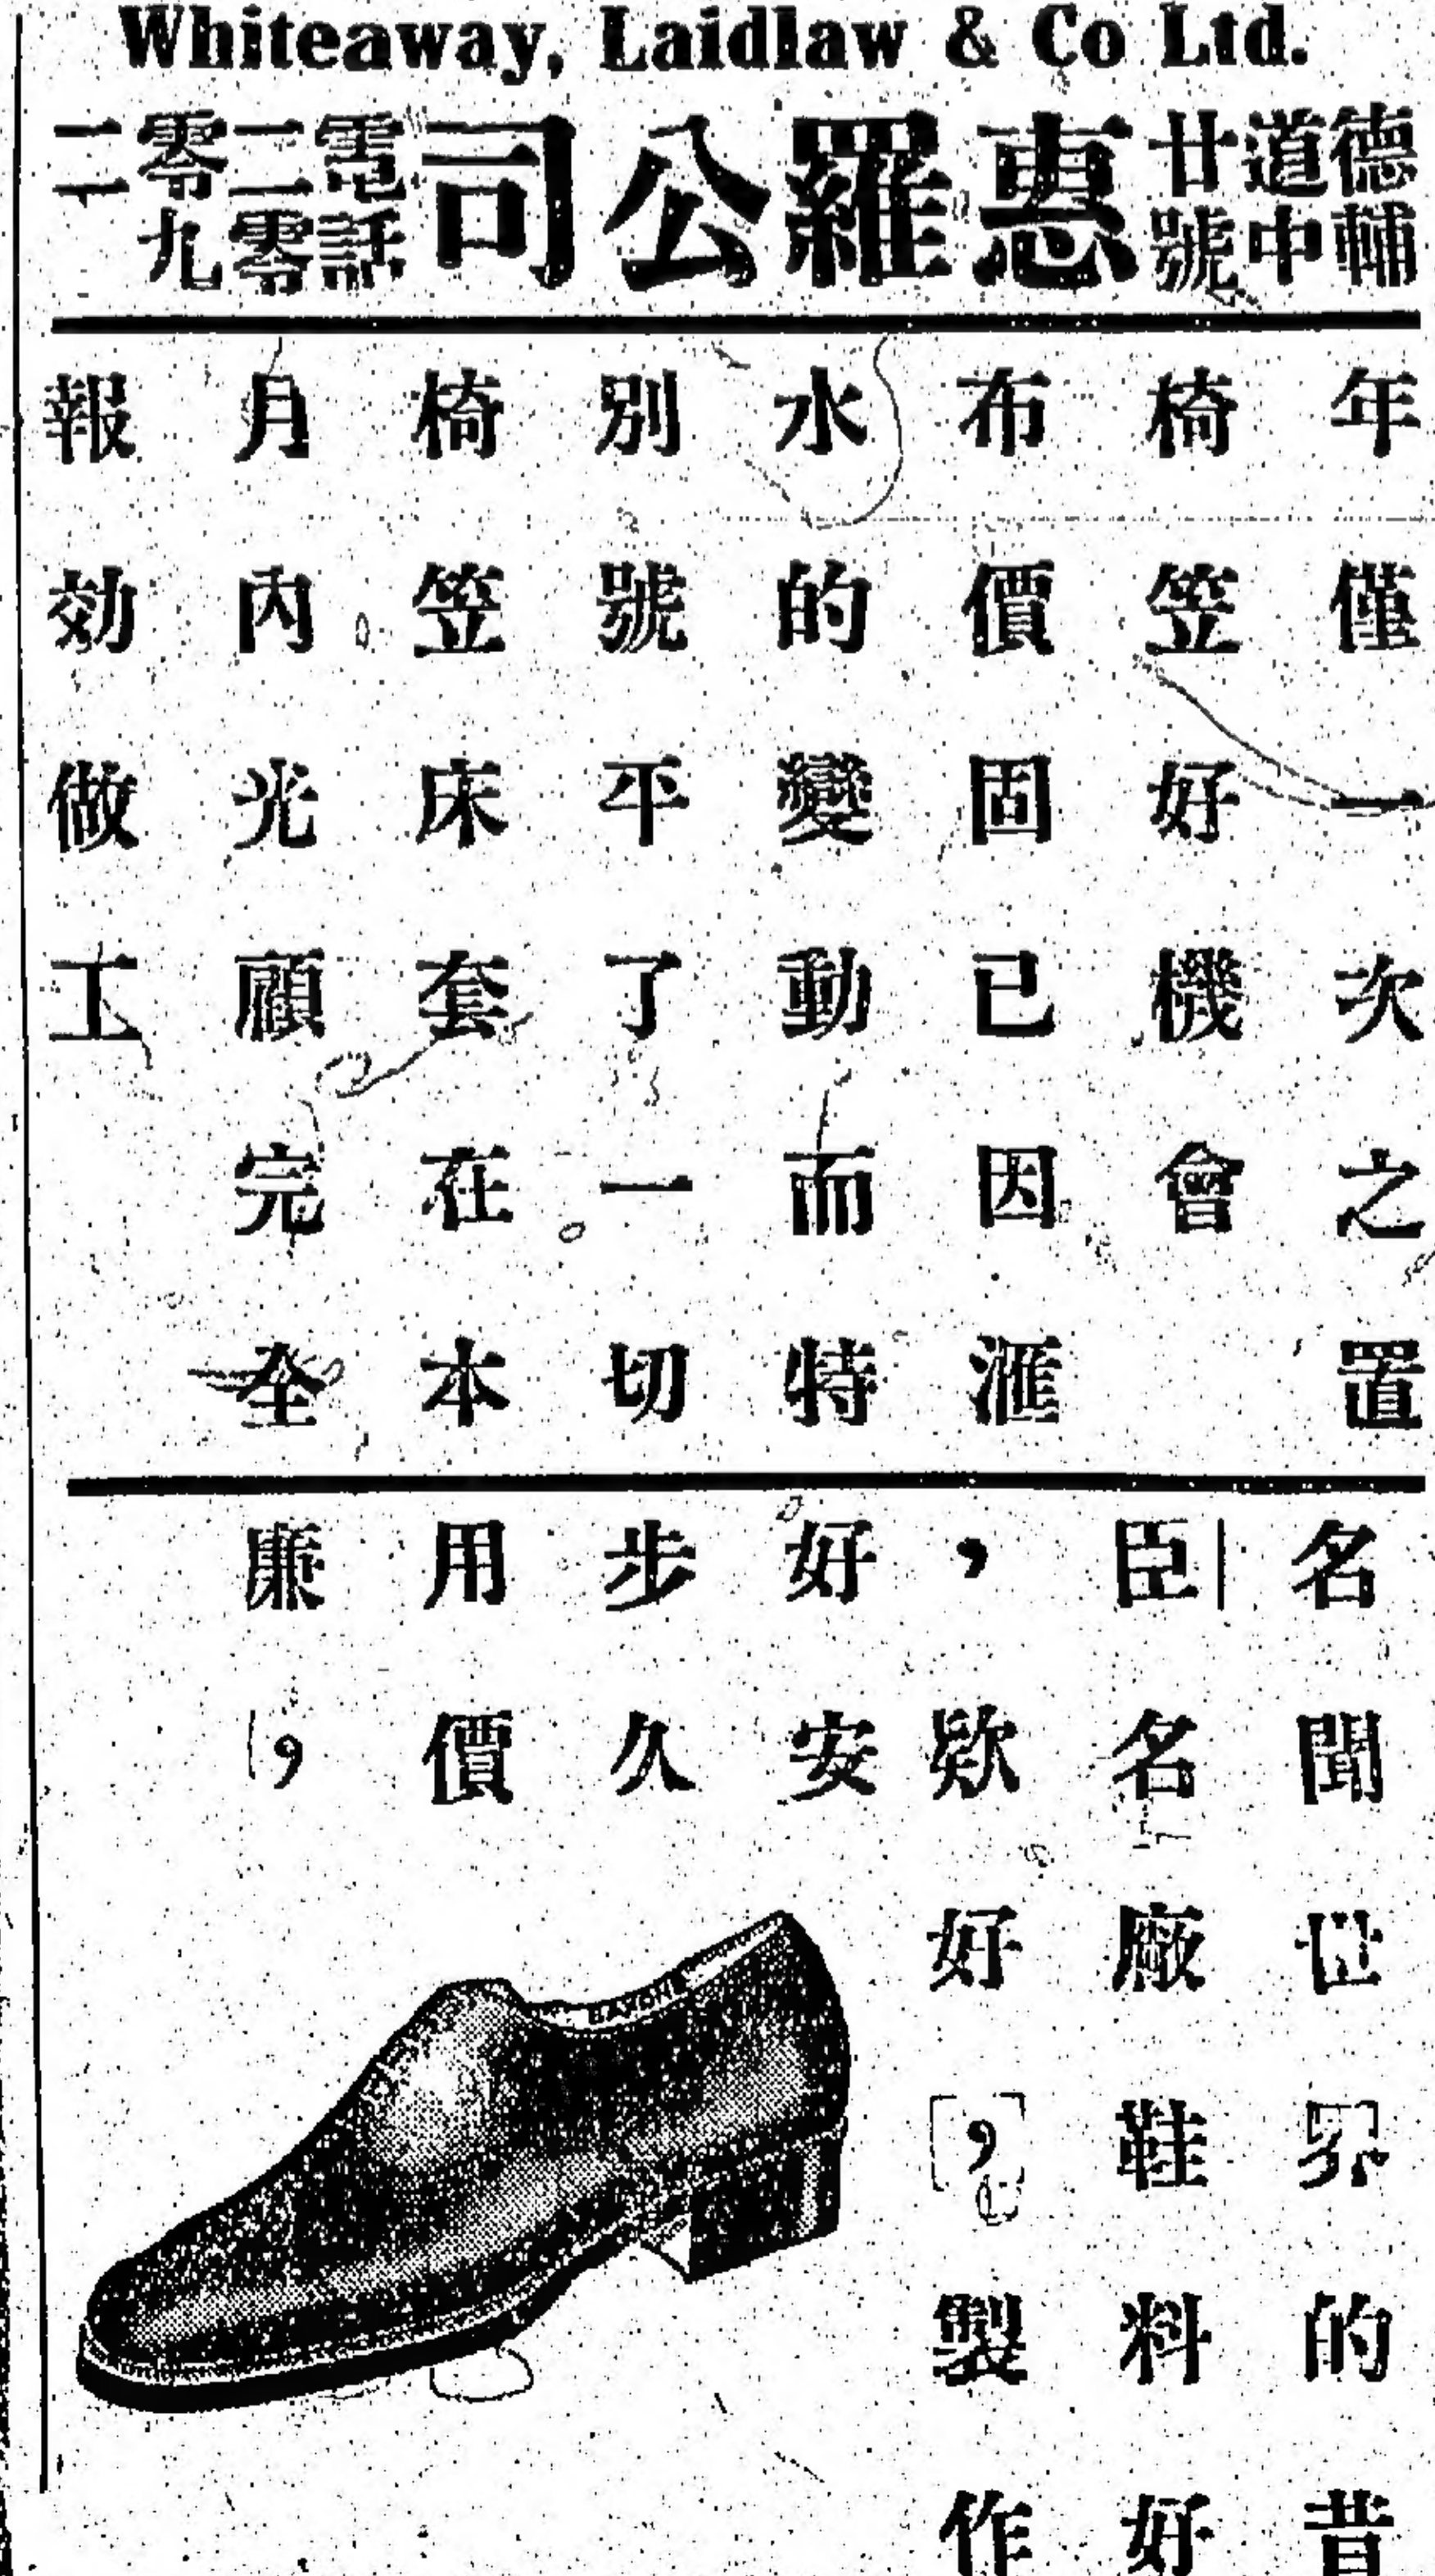 Whiteaway, Laidlaw & Co Ltd.
德輔道中廿號
惠羅公司
電話
年僅一次之置
椅笠好機會
布價固已因滙
水的變動而特
別號平了一切
椅笠床套在本
月內光顧完全
報効做工
名聞世界的昔
臣名廠鞋料好
，欵好，製作
好安
步久
用價
廉，